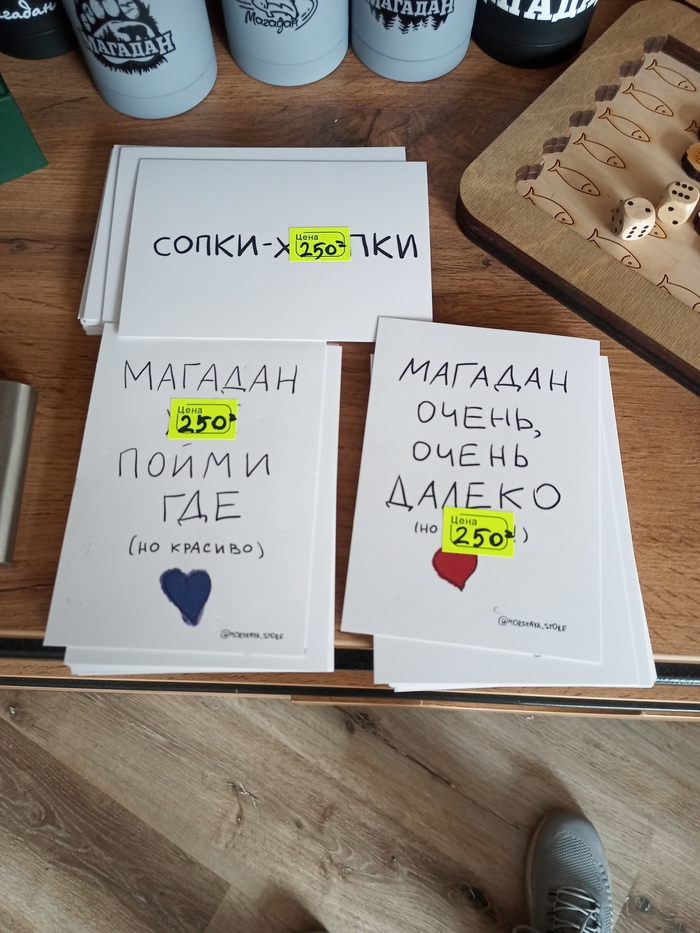 Магадан
МАГАДАН
Магадан
МАГАДАН
МАГАДАН
СОПКИ-Х ПКИ
Цена
250
МАГАДАН
Цена
250
ПОЙМИ
ГДЕ
(НО КРАСИВО)
@MORSKAYA_STORE
МАГАДАН
ОЧЕНЬ,
ОЧЕНЬ
ДАЛЕКО
(НО )
Цена
250
@MORSKAYA_STORE